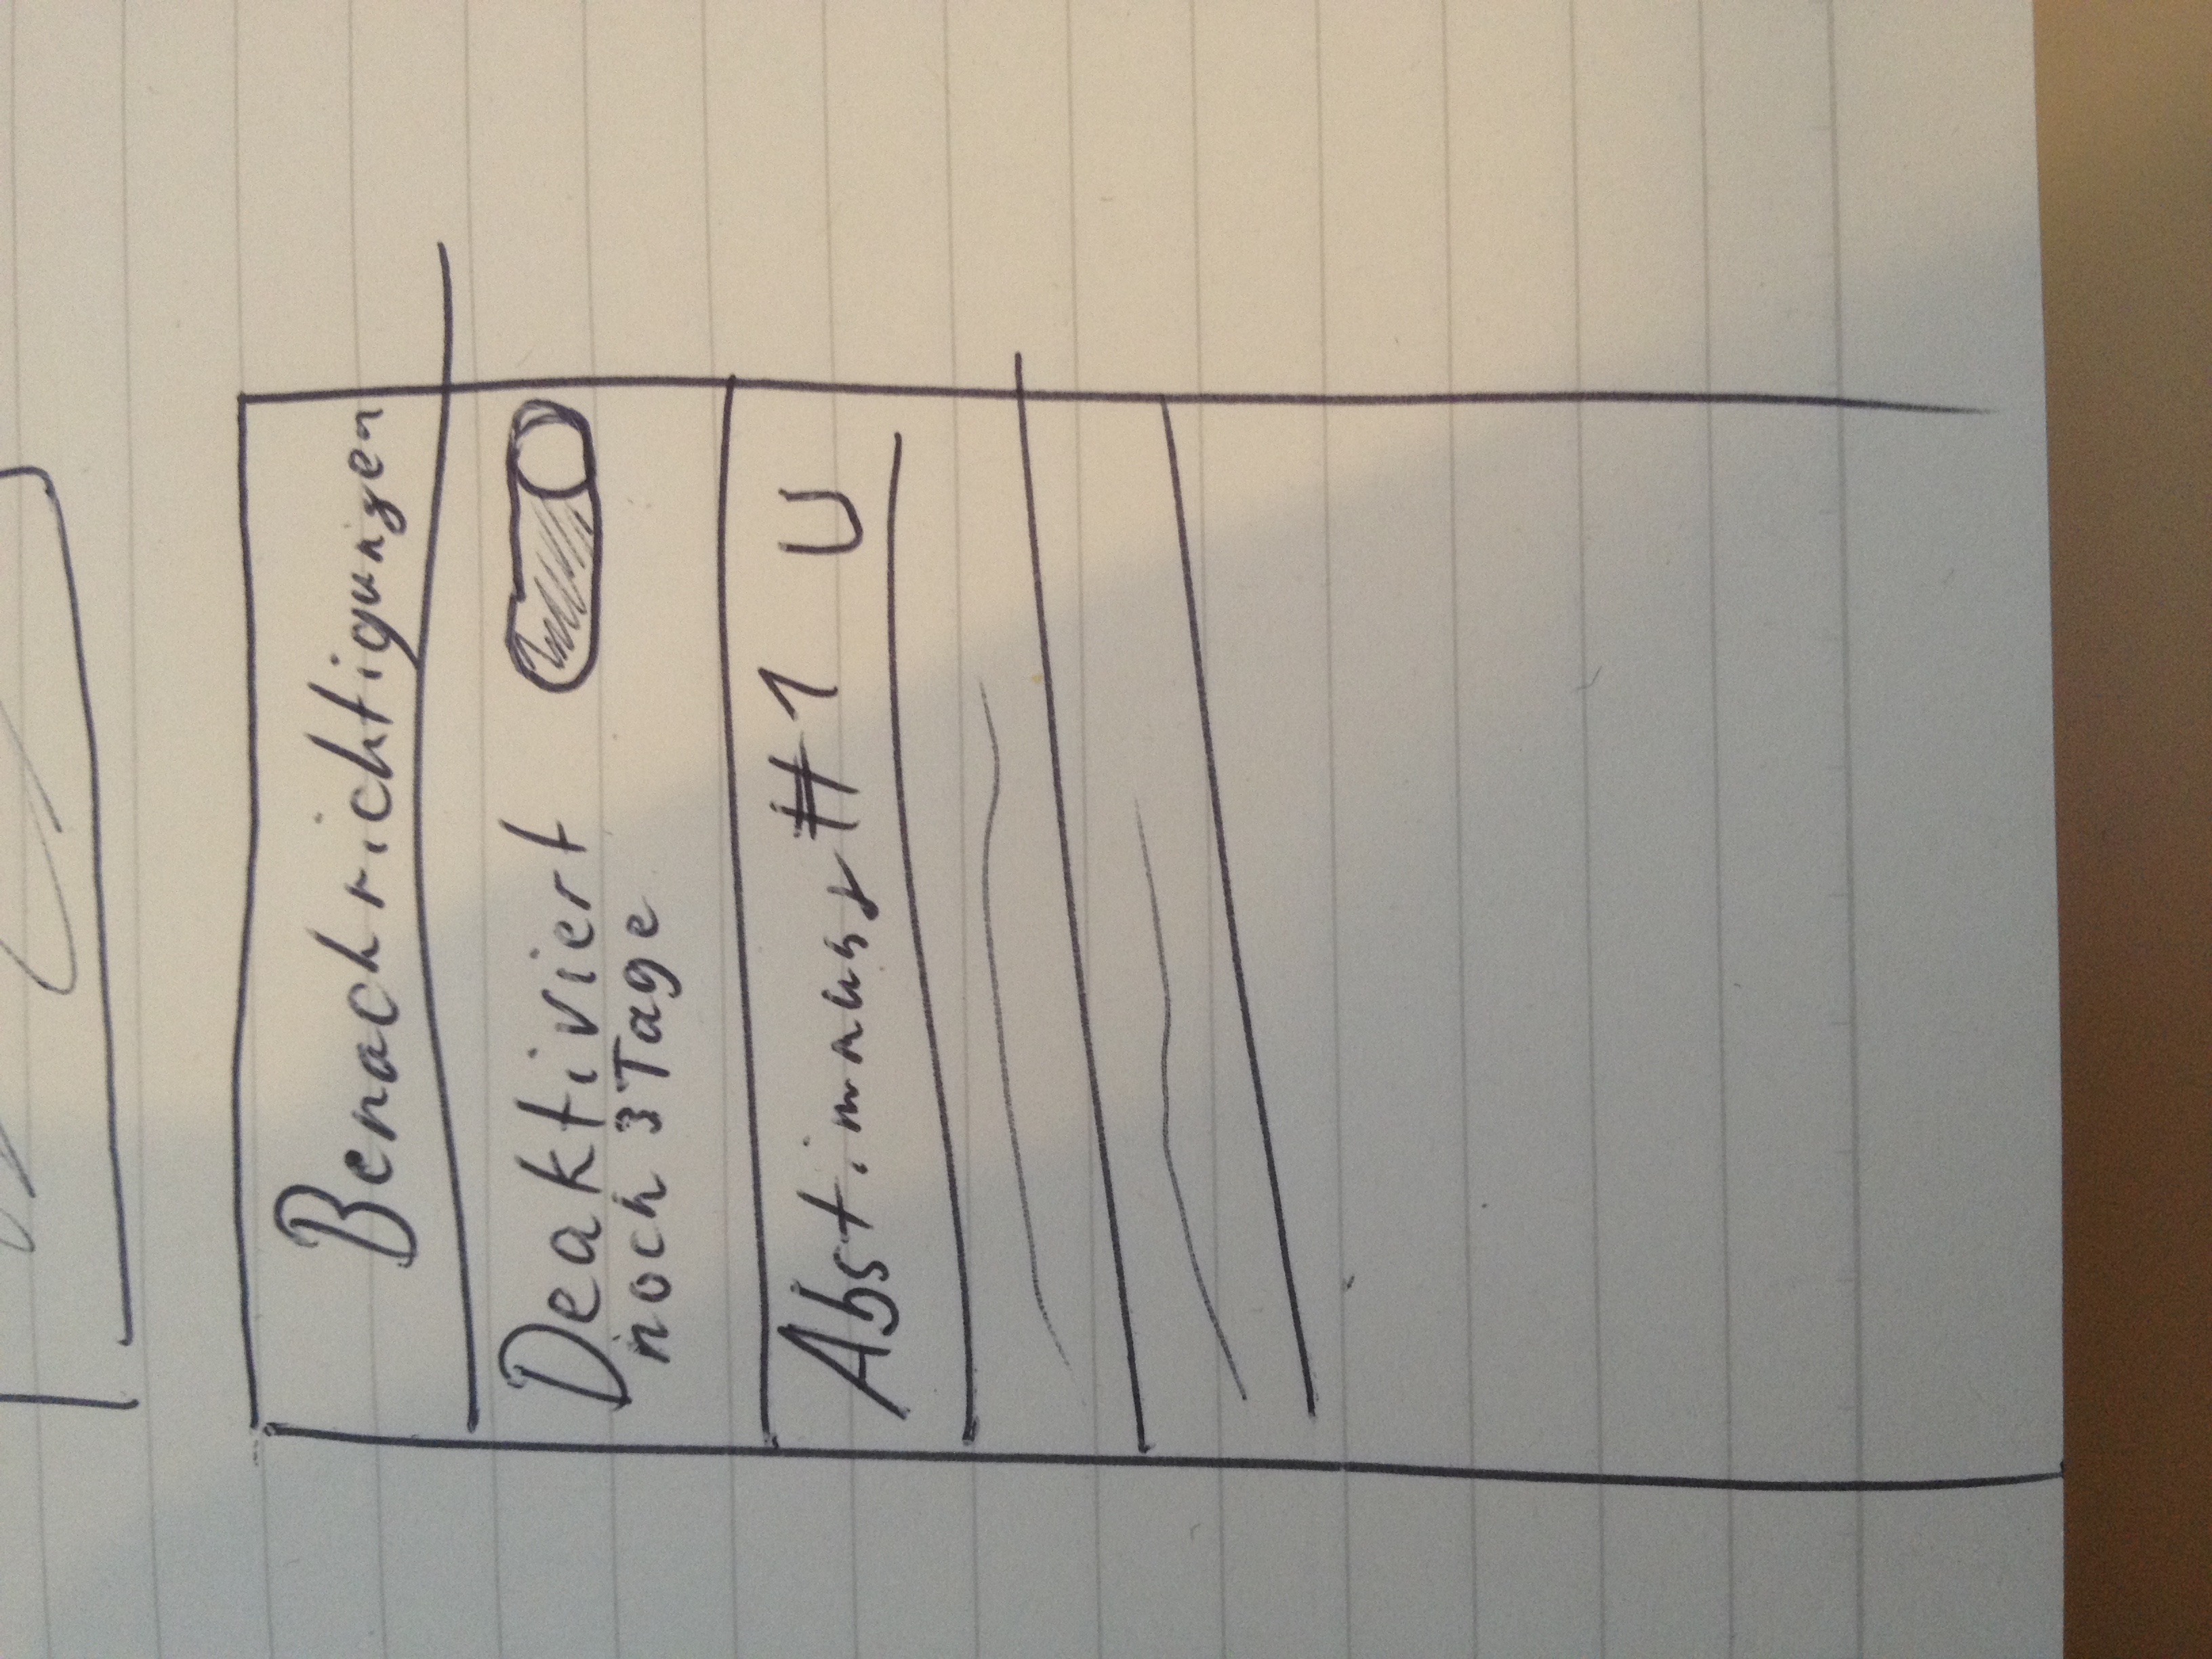 Benachrichtigungen
Deaktiviert
noch 3 Tage
Abstimmung #1 U